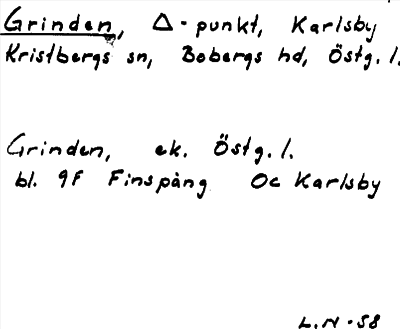 Grinden, Δ-punkt, Karlsby
Kristbergs sn, Bobergs hd, Östg. l.
Grinden, ek. Östg. l.
bl. 9F Finspång Oc Karlsby
L.N-58